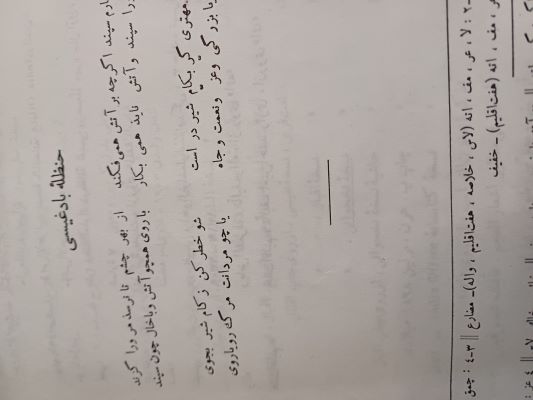 حنظلهٔ بادغیسی
سپند اگرچه بر آتش همی فکند از بهر چشم تا نرسد مر ورا گزند
سپند و آتش ناید همی بکار با روی همچو آتش و با خال چون سپند
مهتری گر بکام شیر در است شو خطر کن ز کام شیر بجوی
یا بزرگی و عز و نعمت و جاه یا چو مردانت مرگ رویاروی
: لا ، عر ، مف ، انه (لاس ، خلاصه ، هفت‌اقلیم ، واله)- مضارع || ۳-۴ : چمق
، مف ، انه (هفت‌اقلیم) - خفیف